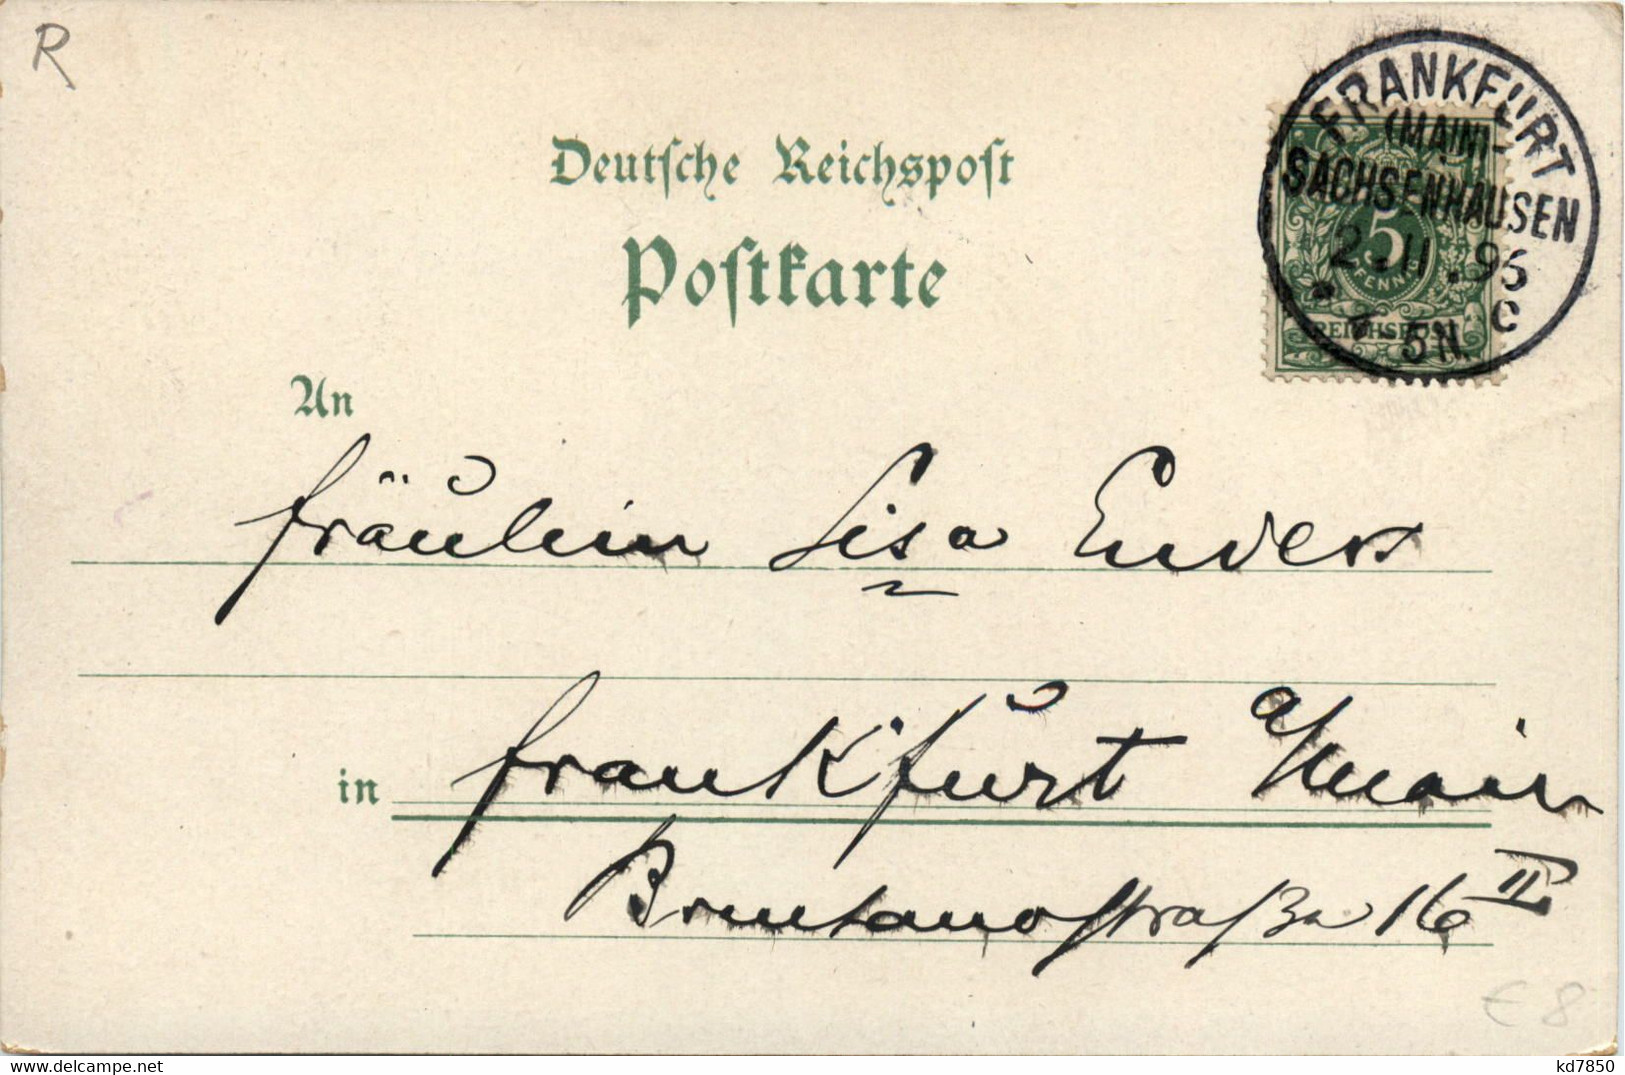 R
Deutsche Reichspost
Postkarte
FRANKFURT
(MAIN)-
SACHSENHAUSEN
2.11.96
5N. C
5
PFENNIG
REICHSPOST
An
Fräulein Lisa Enders
in Frankfurt a/Main
Brentanostraße 16 II
€ 8
kd7850